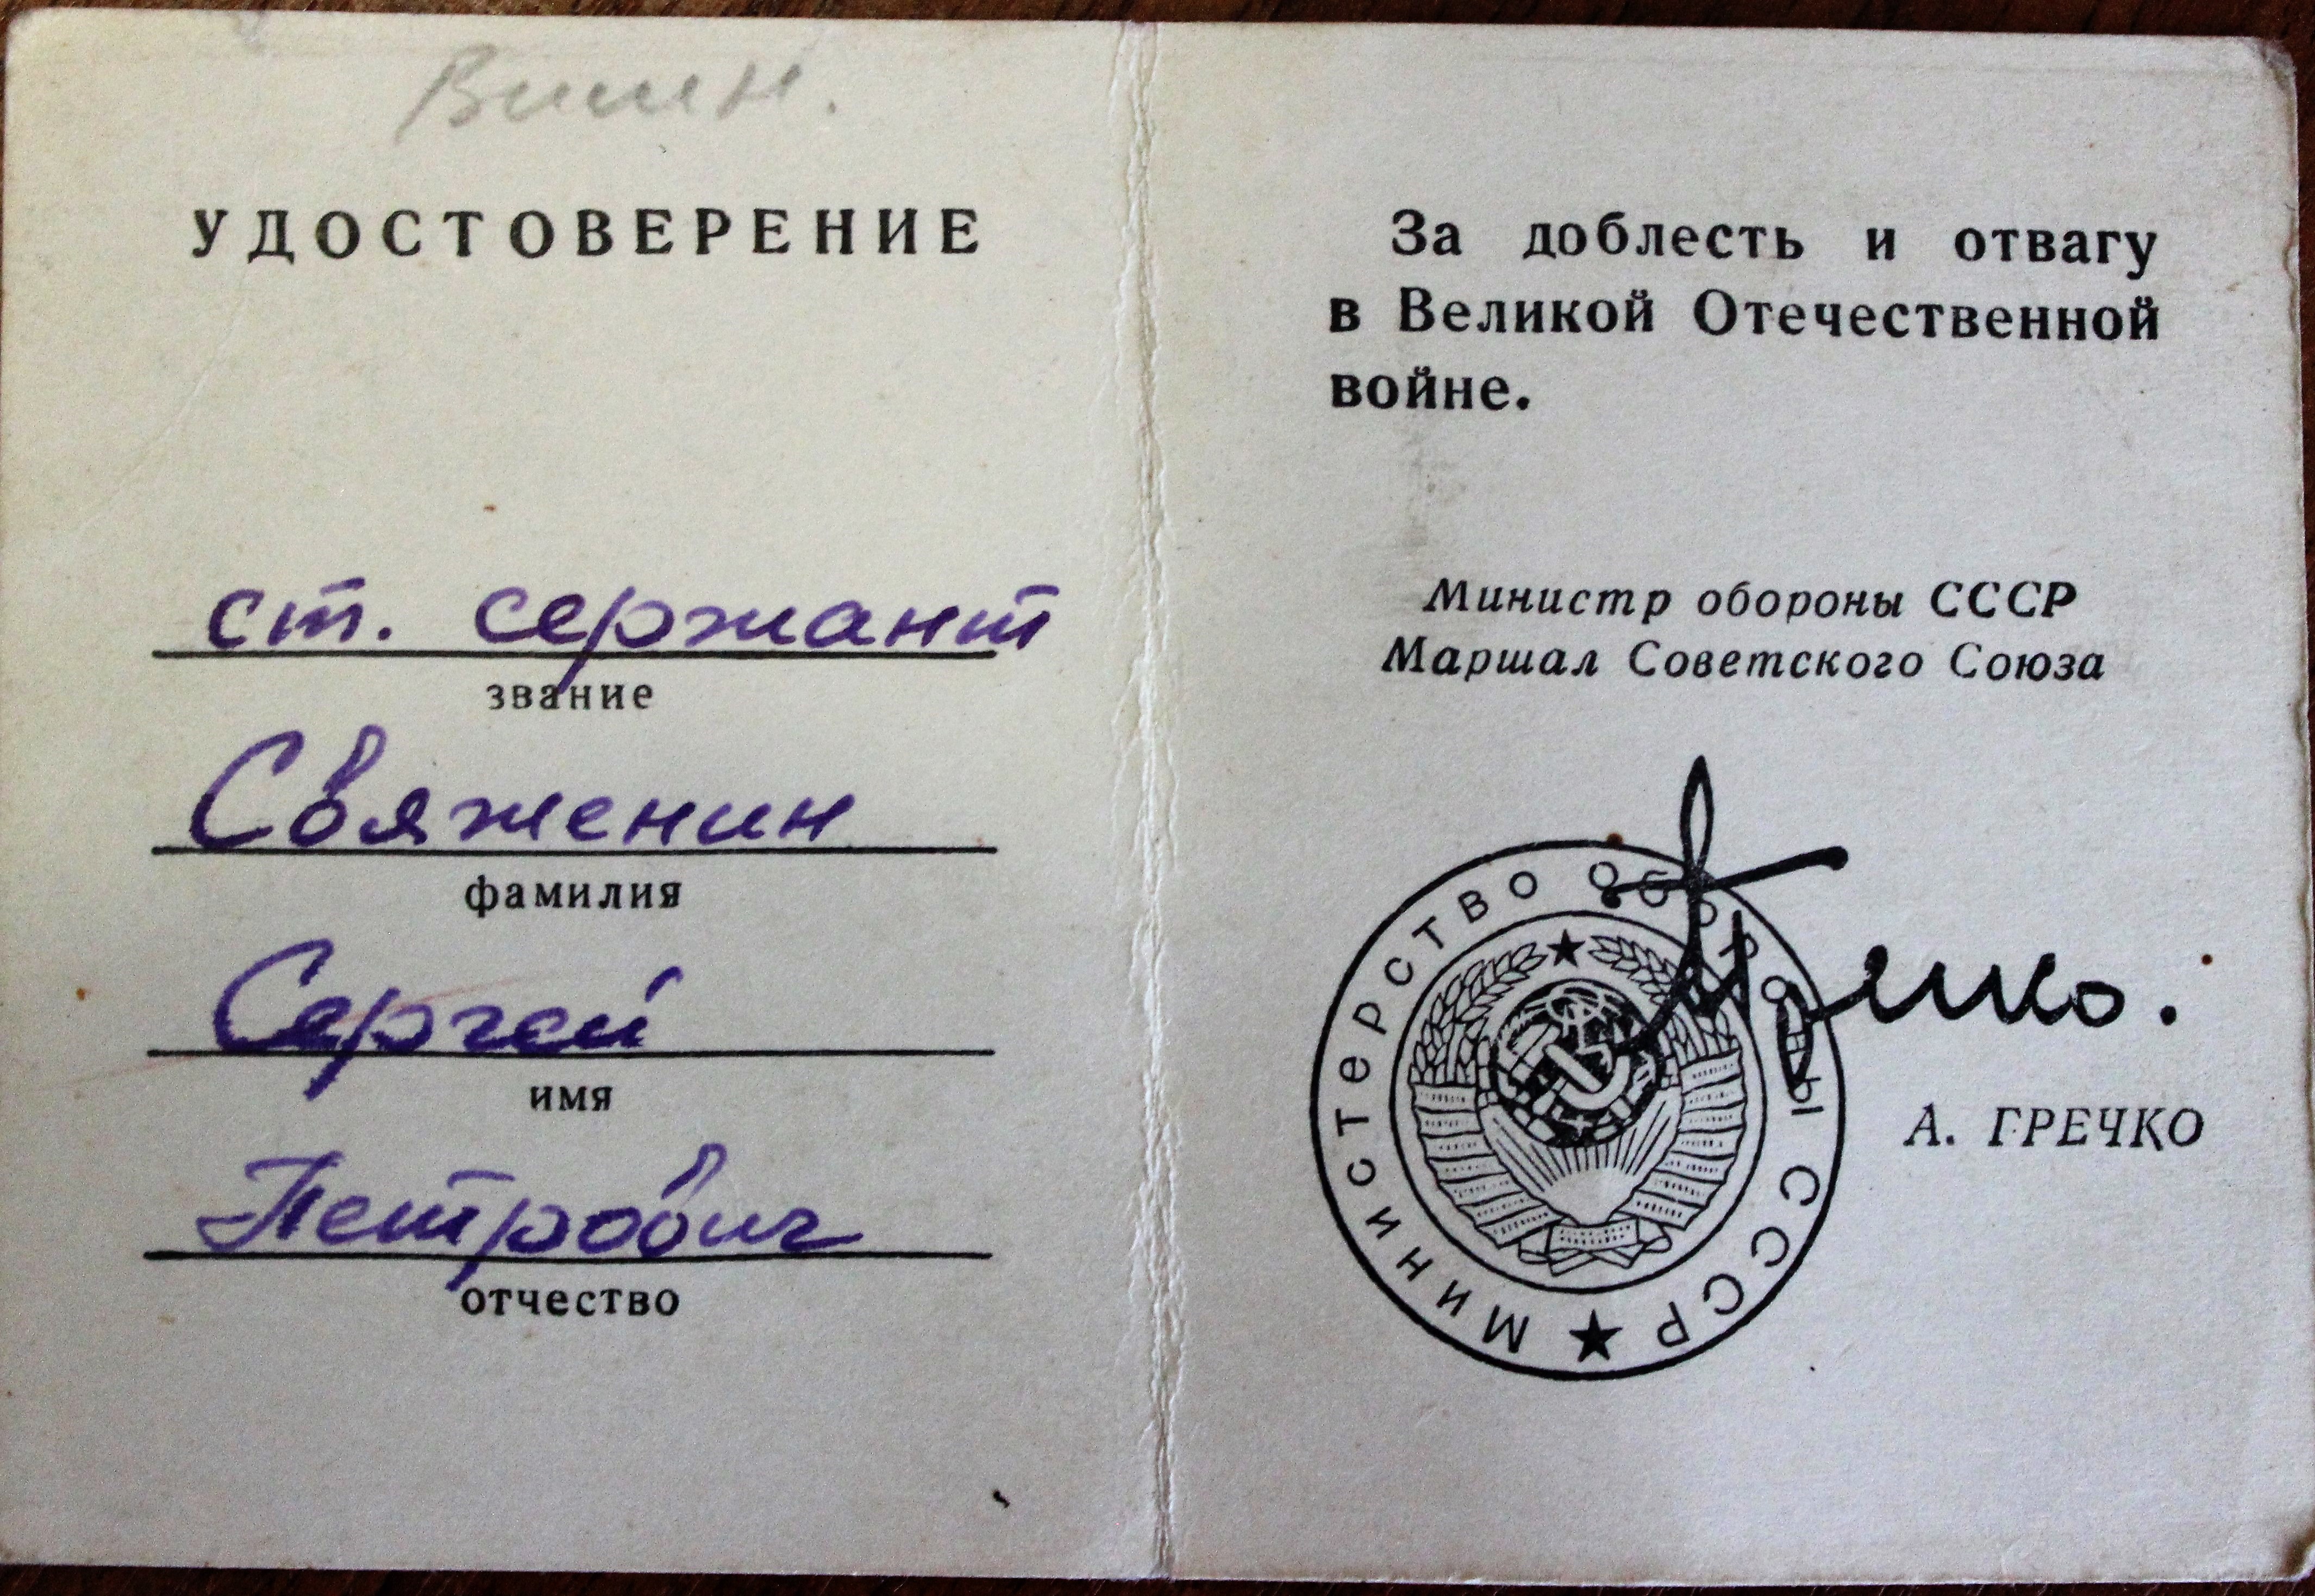 УДОСТОВЕРЕНИЕ
ст. сержант
звание
Свяженин
фамилия
Сергей
имя
Петрович
отчество
За доблесть и отвагу
в Великой Отечественной
войне.
Министр обороны СССР
Маршал Советского Союза
МИНИСТЕРСТВО ОБОРОНЫ СССР
А. ГРЕЧКО